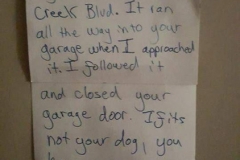 Creek Blvd. It ran
all the way into your
garage when I approached
it. I followed it
and closed your
garage door. If its
not your dog, you